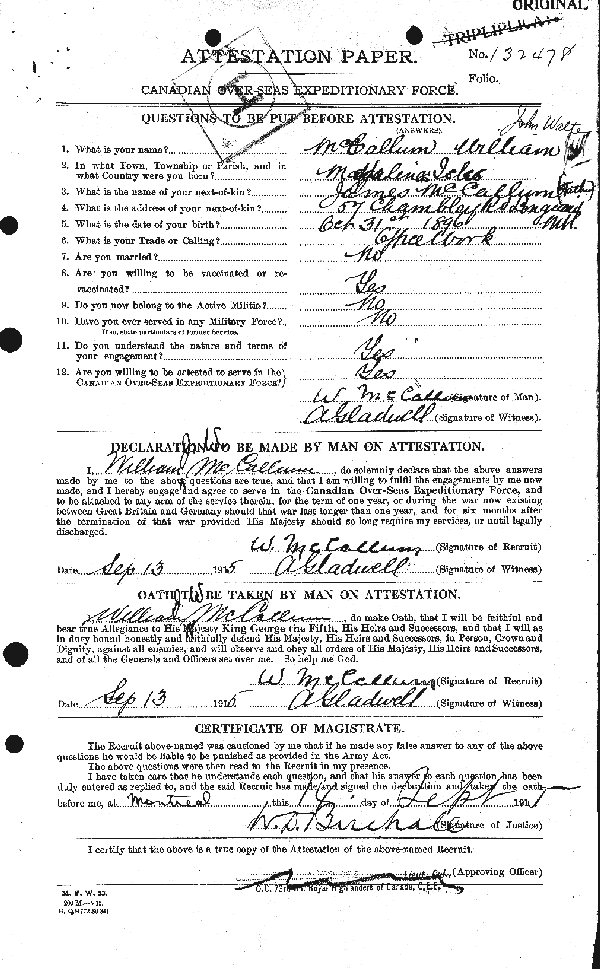 ORIGINAL
TRIPLICATE
ATTESTATION PAPER.
No. 132478
Folio.
CANADIAN OVER-SEAS EXPEDITIONARY FORCE.
QUESTIONS TO BE PUT BEFORE ATTESTATION.
(ANSWERS).
John Walter
1. What is your name? McCallum William
2. In what Town, Township or Parish, and in
what Country were you born? Magdaline Isles
3. What is the name of your next-of-kin? James McCallum (Father)
4. What is the address of your next-of-kin? 57 Chambley Rd Longueuil
5. What is the date of your birth? Oct 31st 1896
6. What is your Trade or Calling? Office Work
7. Are you married? No
8. Are you willing to be vaccinated or re-
vaccinated? Yes
9. Do you now belong to the Active Militia? No
10. Have you ever served in any Military Force? No
If so, state particulars of former Service.
11. Do you understand the nature and terms of
your engagement? Yes
12. Are you willing to be attested to serve in the
CANADIAN OVER-SEAS EXPEDITIONARY FORCE? Yes
W. McCallum (Signature of Man).
A Gladwell (Signature of Witness).
DECLARATION TO BE MADE BY MAN ON ATTESTATION.
I, William McCallum, do solemnly declare that the above answers
made by me to the above questions are true, and that I am willing to fulfil the engagements by me now
made, and I hereby engage and agree to serve in the Canadian Over-Seas Expeditionary Force, and
to be attached to any arm of the service therein, for the term of one year, or during the war now existing
between Great Britain and Germany should that war last longer than one year, and for six months after
the termination of that war provided His Majesty should so long require my services, or until legally
discharged.
W. McCallum (Signature of Recruit)
Date Sep 13 1915 A Gladwell (Signature of Witness)
OATH TO BE TAKEN BY MAN ON ATTESTATION.
I, William McCallum, do make Oath, that I will be faithful and
bear true Allegiance to His Majesty King George the Fifth, His Heirs and Successors, and that I will as
in duty bound honestly and faithfully defend His Majesty, His Heirs and Successors, in Person, Crown and
Dignity, against all enemies, and will observe and obey all orders of His Majesty, His Heirs and Successors,
and of all the Generals and Officers set over me. So help me God.
W. McCallum (Signature of Recruit)
Date Sep 13 1915 A Gladwell (Signature of Witness)
CERTIFICATE OF MAGISTRATE.
The Recruit above-named was cautioned by me that if he made any false answer to any of the above
questions he would be liable to be punished as provided in the Army Act.
The above questions were then read to the Recruit in my presence.
I have taken care that he understands each question, and that his answer to each question has been
duly entered as replied to, and the said Recruit has made and signed the declaration and taken the oath
before me, at Montreal this 14 day of Sept 191
(Signature of Justice)
I certify that the above is a true copy of the Attestation of the above-named Recruit.
Lieut. Col. (Approving Officer)
O.C. 73rd Royal Highlanders of Canada, C.E.F.
M. F. W. 23.